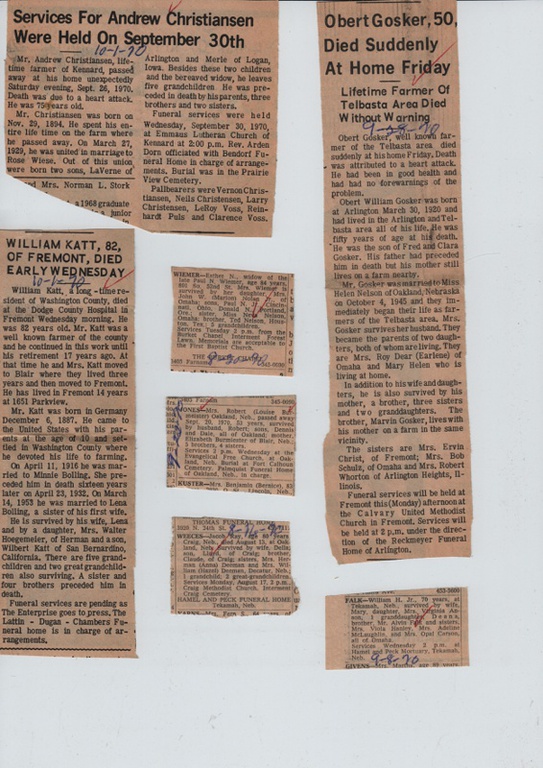 Services For Andrew Christiansen
Were Held On September 30th
10-1-70
Mr. Andrew Christiansen, life-
time farmer of Kennard, passed
away at his home unexpectedly
Saturday evening, Sept. 26, 1970.
Death was due to a heart attack.
He was 75 years old.
Mr. Christiansen was born on
Nov. 29, 1894. He spent his en-
tire life time on the farm where
he passed away. On March 27,
1929, he was united in marriage to
Rose Wiese. Out of this union
were born two sons, LaVerne of
Arlington and Merle of Logan,
Iowa. Besides these two children
and the bereaved widow, he leaves
five grandchildren. He was pre-
ceded in death by his parents, three
brothers and two sisters.
Funeral services were held
Wednesday, September 30, 1970,
at Emmaus Lutheran Church of
Kennard at 2:00 p.m. Rev. Arden
Dorn officiated with Bendorf Fu-
neral Home in charge of arrange-
ments. Burial was in the Prairie
View Cemetery.
Pallbearers were Vernon Chris-
tiansen, Neils Christensen, Larry
Christensen, LeRoy Voss, Rein-
hardt Puls and Clarence Voss.
nd Mrs. Norman L. Stork
a 1968 graduate
a junior
WILLIAM KATT, 82,
OF FREMONT, DIED
EARLY WEDNESDAY
10-1-70
William Katt, a long-time re-
sident of Washington County, died
at the Dodge County Hospital in
Fremont Wednesday morning. He
was 82 years old. Mr. Katt was a
well known farmer of the county
and he continued in this work until
his retirement 17 years ago. At
that time he and Mrs. Katt moved
to Blair where they lived three
years and then moved to Fremont.
He has lived in Fremont 14 years
at 1651 Parkview.
Mr. Katt was born in Germany
December 6, 1887. He came to
the United States with his par-
ents at the age of 10 and set-
tled in Washington County where
he devoted his life to farming.
On April 11, 1916 he was mar-
ried to Minnie Bolling. She pre-
ceded him in death sixteen years
later on April 23, 1932. On March
14, 1953 he was married to Lena
Bolling, a sister of his first wife.
He is survived by his wife, Lena
and by a daughter, Mrs. Walter
Hoegemeier, of Herman and a son,
Wilbert Katt of San Bernardino,
California. There are five grand-
children and two great grandchild-
ren also surviving. A sister and
four brothers preceded him in
death.
Funeral services are pending as
The Enterprise goes to press. The
Lattin - Dugan - Chambers Fu-
neral home is in charge of ar-
rangements.
WIEMER—Esther N., widow of the
late Paul N. Wiemer, age 64 years,
Omaha; sons, Paul N. Jr.,
Services Tuesday 3 p.m. from the
Lawn. Memorials are acceptable to
the First Baptist Church.
JONES—Mrs. Robert (Louise
Oakland, Neb., passed away
Sept. 20, 1970, 33 years, survived
by husband, Robert; sons, Dennis
and Dale, all of Oakland; mother,
Elizabeth Burmiester of Blair, Neb.;
5 brothers, 4 sisters.
Services 2 p.m. Wednesday at the
Evangelical Free Church, at Oak-
land, Neb. Burial at Fort Calhoun
Cemetery. Palmquist Funeral Home
of Oakland, Neb. in charge.
KUSTER—Mrs. Benjamin (Bernice)
THOMAS FUNERAL HOME
WEECKS—Jacob
Craig, Neb., died August 15, at Oak-
land, Neb. Survived by wife, Della;
son, Lloyd, of Craig; brother,
Claude, of Craig; sisters, Mrs. Her-
man (Anna) Doeman and Mrs. Wil-
liam (Hazel) Deeman, Decatur, Neb.;
1 grandchild; 2 great-grandchildren.
Services Monday, August 17, 2 p.m.,
Craig Methodist Church. Interment
Craig Cemetery.
HAMIL AND PECK FUNERAL HOME
Tekamah, Neb.
Obert Gosker, 50,
Died Suddenly
At Home Friday
Lifetime Farmer Of
Telbasta Area Died
Without Warning
9-28-70
Obert Gosker, well known far-
mer of the Telbasta area died
suddenly at his home Friday. Death
was attributed to a heart attack.
He had been in good health and
had had no forewarnings of the
problem.
Obert William Gosker was born
at Arlington March 30, 1920 and
had lived in the Arlington and Tel-
basta area all of his life. He was
fifty years of age at his death.
He was the son of Fred and Clara
Gosker. His father had preceded
him in death but his mother still
lives on a farm nearby.
Mr. Gosker was married to Miss
Helen Nelson of Oakland, Nebraska
on October 4, 1945 and they im-
mediately began their life as far-
mers of the Telbasta area. Mrs.
Gosker survives her husband. They
became the parents of two daugh-
ters, both of whom are living. They
are Mrs. Roy Dear (Earlene) of
Omaha and Mary Helen who is
living at home.
In addition to his wife and daugh-
ters, he is also survived by his
mother, a brother, three sisters
and two granddaughters. The
brother, Marvin Gosker, lives with
his mother on a farm in the same
vicinity.
The sisters are Mrs. Ervin
Christ, of Fremont; Mrs. Bob
Schulz, of Omaha and Mrs. Robert
Whorton of Arlington Heights, Il-
linois.
Funeral services will be held at
Fremont this (Monday) afternoon at
the Calvary United Methodist
Church in Fremont. Services will
be held at 2 p.m. under the direc-
tion of the Reckmeyer Funeral
Home of Arlington.
FALK—William H., Jr., 70 years, at
Tekamah, Neb., survived by wife,
Mary, daughter, Mrs. Virginia An-
son, 1 granddaughter, Deanna,
brother, Mr. Alvin Falk and sisters,
Mrs. Viola Hensley, Mrs. Adeline
McLaughlin, and Mrs. Opal Carson,
all of Omaha.
Services Wednesday 2 p.m. at
Hamil and Peck Mortuary, Tekamah,
Neb.
9-8-70